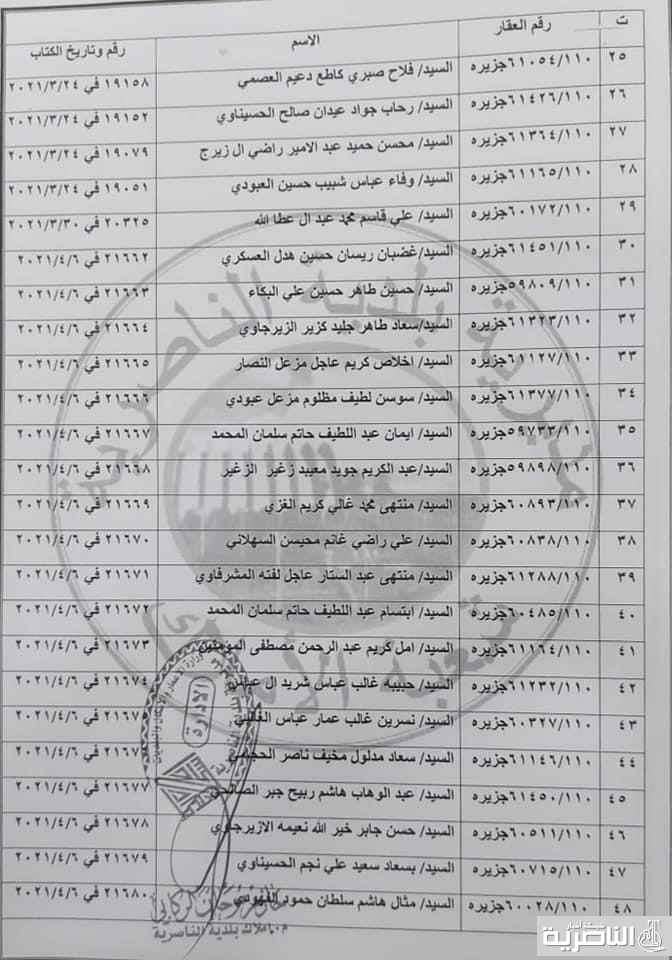 ت رقم العقار الاسم رقم وتاريخ الكتاب
٢٥ ٦١٠٥٤/١١٠جزيره السيد/ فلاح صبري كاطع دعيم العصمي ١٩١٥٨ في ٢٠٢١/٣/٢٤
٢٦ ٦١٤٢٦/١١٠جزيره السيد/ رحاب جواد عيدان صالح الحسيناوي ١٩١٥٢ في ٢٠٢١/٣/٢٤
٢٧ ٦١٣٦٤/١١٠جزيره السيد/ محسن حميد عبد الامير راضي ال زيرج ١٩٠٧٩ في ٢٠٢١/٣/٢٤
٢٨ ٦١١٦٥/١١٠جزيره السيد/ وفاء عباس شبيب حسين العبودي ١٩٠٥١ في ٢٠٢١/٣/٢٤
٢٩ ٦٠١٧٢/١١٠جزيره السيد/ علي قاسم محمد عبد ال عطا الله ٢٠٣٢٥ في ٢٠٢١/٣/٣٠
٣٠ ٦١٤٥١/١١٠جزيره السيد/غضبان ريسان حسين هدل العسكري ٢١٦٦٢ في ٢٠٢١/٤/٦
٣١ ٥٩٨٠٩/١١٠جزيره السيد/ حسين طاهر حسين علي البكاء ٢١٦٦٣ في ٢٠٢١/٤/٦
٣٢ ٦١٣٢٣/١١٠جزيره السيد/سعاد طاهر جليد كزير الزيرجاوي ٢١٦٦٤ في ٢٠٢١/٤/٦
٣٣ ٦١١٢٧/١١٠جزيره السيد/ اخلاص كريم عاجل مزعل النصار ٢١٦٦٥ في ٢٠٢١/٤/٦
٣٤ ٦١٣٧٧/١١٠جزيره السيد/ سوسن لطيف مظلوم مزعل عبودي ٢١٦٦٦ في ٢٠٢١/٤/٦
٣٥ ٥٩٧٣٣/١١٠جزيره السيد/ ايمان عبد اللطيف حاتم سلمان المحمد ٢١٦٦٧ في ٢٠٢١/٤/٦
٣٦ ٥٩٨٩٨/١١٠جزيره السيد/عبد الكريم جويد معيبد زغير الزغير ٢١٦٦٨ في ٢٠٢١/٤/٦
٣٧ ٦٠٨٩٣/١١٠جزيره السيد/ منتهى محمد غالي كريم الغزي ٢١٦٦٩ في ٢٠٢١/٤/٦
٣٨ ٦٠٨٣٨/١١٠جزيره السيد/ علي راضي غانم محيسن السهلاني ٢١٦٧٠ في ٢٠٢١/٤/٦
٣٩ ٦١٢٨٨/١١٠جزيره السيد/ منتهى عبد الستار عاجل لفته المشرفاوي ٢١٦٧١ في ٢٠٢١/٤/٦
٤٠ ٦٠٤٨٥/١١٠جزيره السيد/ ابتسام عبد اللطيف حاتم سلمان المحمد ٢١٦٧٢ في ٢٠٢١/٤/٦
٤١ ٦١١٦٤/١١٠جزيره السيد/ امل كريم عبد الرحمن مصطفى المؤمنين ٢١٦٧٣ في ٢٠٢١/٤/٦
٤٢ ٦١٢٣٢/١١٠جزيره السيد/ حبيبه غالب عباس شريد ال عباس ٢١٦٧٤ في ٢٠٢١/٤/٦
٤٣ ٦٠٣٢٧/١١٠جزيره السيد/ نسرين غالب عمار عباس في ٢٠٢١/٤/٦
٤٤ ٦١١٤٦/١١٠جزيره السيد/ سعاد مدلول مخيف ناصر الحجامي في ٢٠٢١/٤/٦
٤٥ ٦١٤٥٠/١١٠جزيره السيد/ عبد الوهاب هاشم ربيح جبر الصالحي ٢١٦٧٧ في ٢٠٢١/٤/٦
٤٦ ٦٠٥١١/١١٠جزيره السيد/ حسن جابر خير الله نعيمه الازيرجاوي ٢١٦٧٨ في ٢٠٢١/٤/٦
٤٧ ٦٠٧١٥/١١٠جزيره السيد/ بسعاد سعيد علي نجم الحسيناوي ٢١٦٧٩ في ٢٠٢١/٤/٦
٤٨ ٦٠٠٢٨/١١٠جزيره السيد/ مثال هاشم سلطان حمود الفهودي ٢١٦٨٠ في ٢٠٢١/٤/٦
مديرية بلدية الناصرية
شعبة الأملاك
الادارة
م. املاك بلدية الناصرية
شبكة اخبار
الناصرية